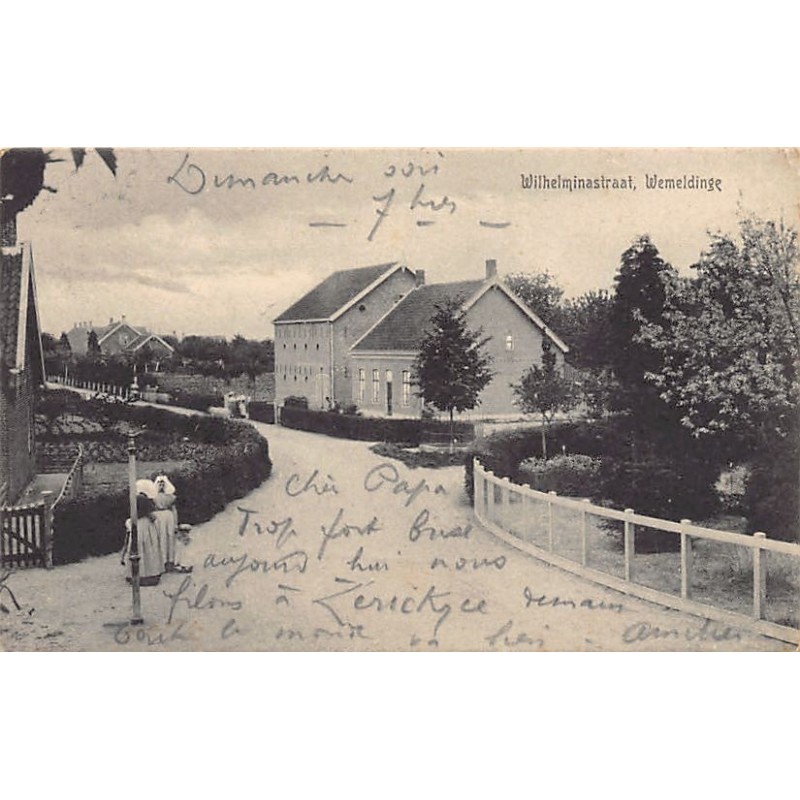 Dimanche soir
7 hrs
Wilhelminastraat, Wemeldinge
Cher Papa
Trop fort brise
aujourd'hui nous
filons à Zerickzee demain
Tout le monde va bien - Amitiés